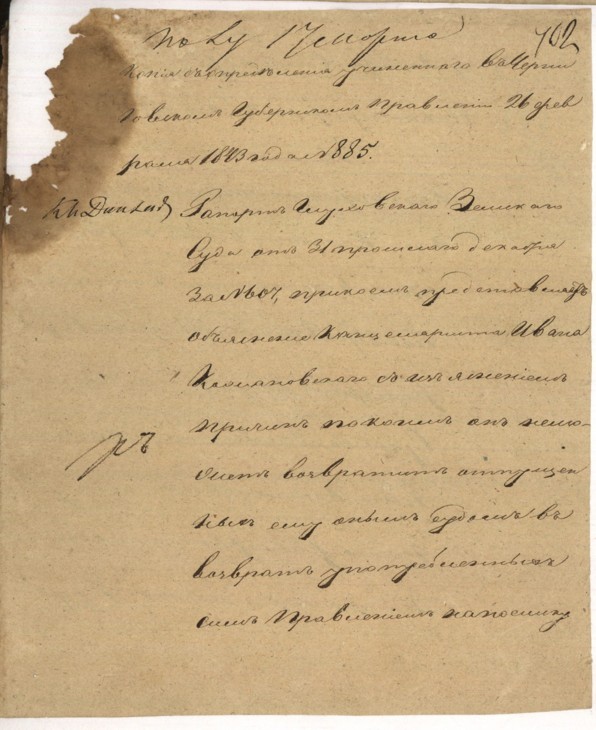 17 марта 702
Копія съ опредѣленія учиненнаго въ Черни
говскомъ Губернскомъ Правленіи 26 фев
раля 1843 года № 885.
Рапортъ Глуховскаго Земскаго
Суда отъ 31 прошлаго декабря
за № 607, при коемъ представляетъ
объясненіе Канцеляриста Ивана
съ изъясненіемъ
причинъ по коимъ онъ немо-
жетъ возвратить отпущен
ныхъ ему онымъ Судомъ въ
возвратъ употребленныхъ
симъ Правленіемъ на посылку